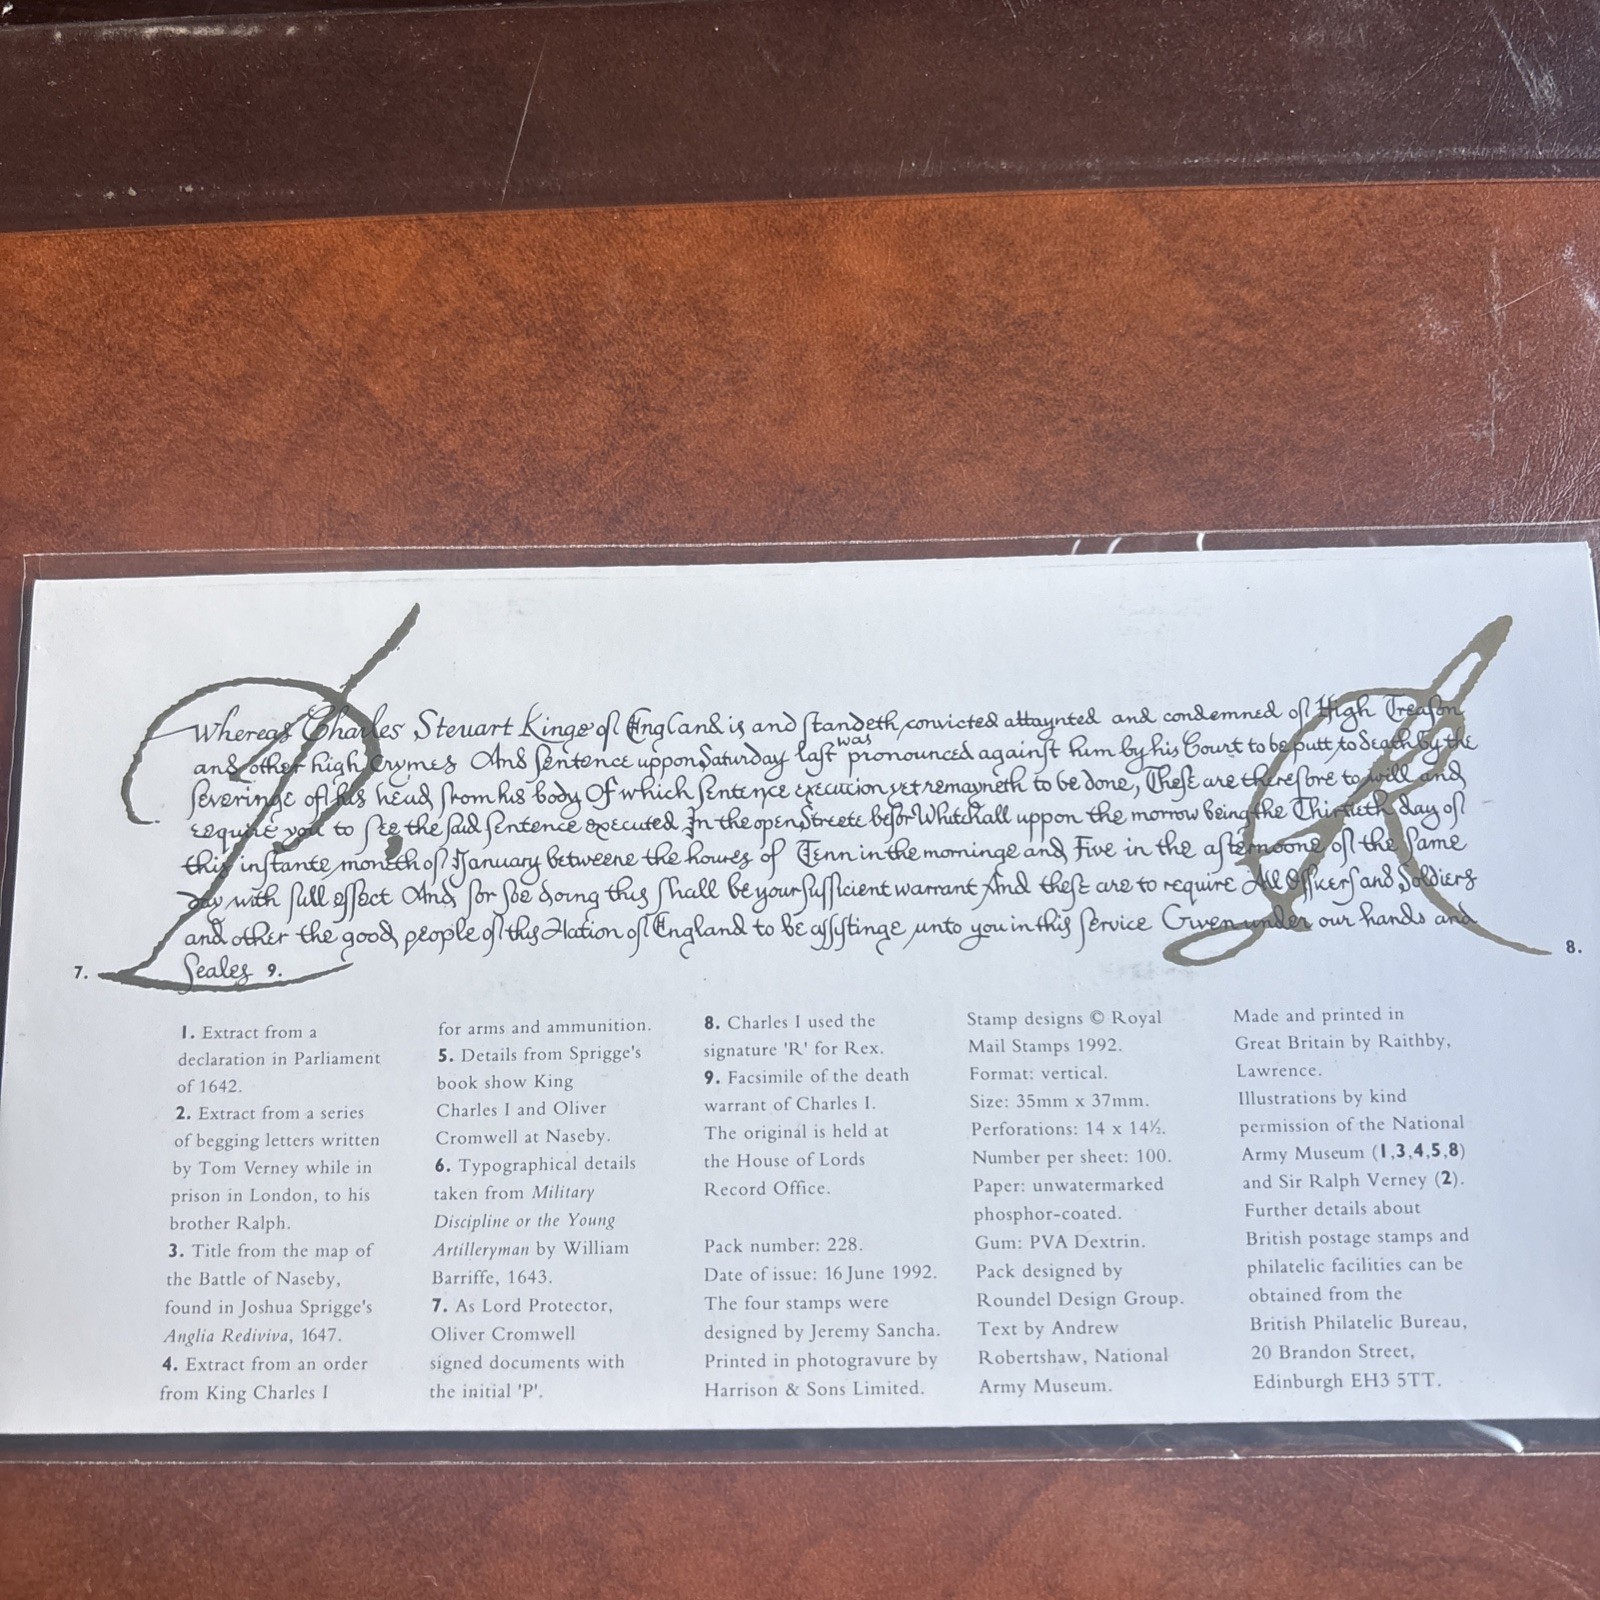 Whereas Charles Steuart Kinge of England is and standeth convicted attaynted and condemned of High Treason
and other high Crymes And sentence uppon Saturday last was pronounced against him by this Court to be putt to death by the
severinge of his head from his body Of which sentence execucion yet remayneth to be done, These are therefore to will and
require you to see the said sentence executed In the open Streete before Whitehall uppon the morrow being the Thirtieth day of
this instante moneth of January betweene the houres of Tenn in the morninge and Five in the afternoone of the same
day with full effect And for soe doing this shall be your sufficient warrant And these are to require All Officers and Soldiers
and other the good people of this Nation of England to be assistinge unto you in this service Given under our hands and
Seales 9.
7.
8.
1. Extract from a
declaration in Parliament
of 1642.
2. Extract from a series
of begging letters written
by Tom Verney while in
prison in London, to his
brother Ralph.
3. Title from the map of
the Battle of Naseby,
found in Joshua Sprigge's
Anglia Rediviva, 1647.
4. Extract from an order
from King Charles I
for arms and ammunition.
5. Details from Sprigge's
book show King
Charles I and Oliver
Cromwell at Naseby.
6. Typographical details
taken from Military
Discipline or the Young
Artilleryman by William
Barriffe, 1643.
7. As Lord Protector,
Oliver Cromwell
signed documents with
the initial 'P'.
8. Charles I used the
signature 'R' for Rex.
9. Facsimile of the death
warrant of Charles I.
The original is held at
the House of Lords
Record Office.
Pack number: 228.
Date of issue: 16 June 1992.
The four stamps were
designed by Jeremy Sancha.
Printed in photogravure by
Harrison & Sons Limited.
Stamp designs © Royal
Mail Stamps 1992.
Format: vertical.
Size: 35mm x 37mm.
Perforations: 14 x 14½.
Number per sheet: 100.
Paper: unwatermarked
phosphor-coated.
Gum: PVA Dextrin.
Pack designed by
Roundel Design Group.
Text by Andrew
Robertshaw, National
Army Museum.
Made and printed in
Great Britain by Raithby,
Lawrence.
Illustrations by kind
permission of the National
Army Museum (1,3,4,5,8)
and Sir Ralph Verney (2).
Further details about
British postage stamps and
philatelic facilities can be
obtained from the
British Philatelic Bureau,
20 Brandon Street,
Edinburgh EH3 5TT.